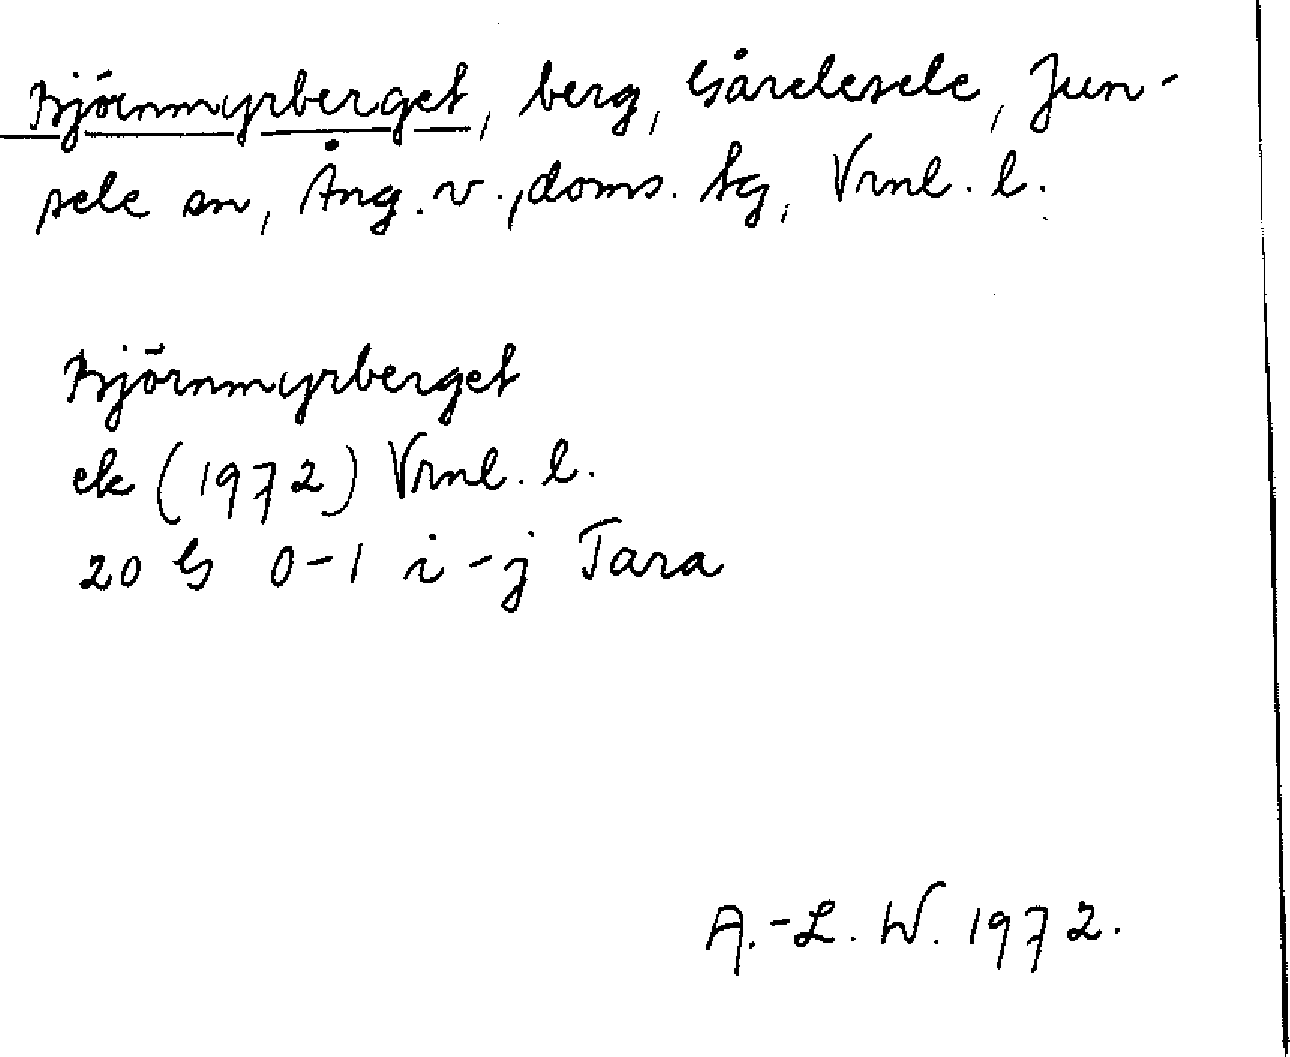 Björnmyrberget, berg, Gårelesele, Jun-
sele sn, Ång. v., doms. tg, Vrnl. l.
Björnmyrberget
ek (1972) Vrnl. l.
20 G 0-1 i-j Tara
A.-L. W. 1972.